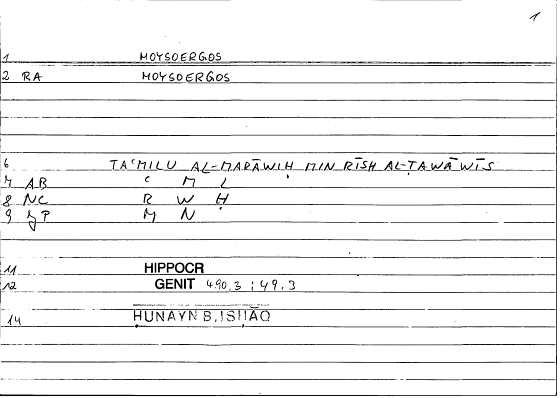 1
1 MOYSOERGOS
2 RA MOYSOERGOS
6 TAʿMILU AL-MARĀWIḤ MIN RĪSH AL-ṬAWĀWĪS
7 AB ʿ M L
8 NC R W Ḥ
9 JP M N
11 HIPPOCR
12 GENIT 490,3 ; 49.3
14 ḤUNAYN B. ISḤĀQ